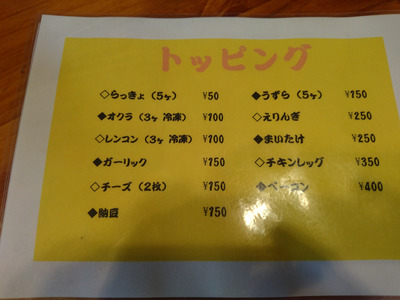 トッピング
◇らっきょ（5ヶ） ¥50
◆オクラ（3ヶ 冷凍） ¥100
◇レンコン（3ヶ 冷凍） ¥100
◆ガーリック ¥150
◇チーズ（2枚） ¥150
◆納豆 ¥150
◆うずら（5ヶ） ¥150
◇えりんぎ ¥250
◆まいたけ ¥250
◇チキンレッグ ¥350
◆ベーコン ¥400